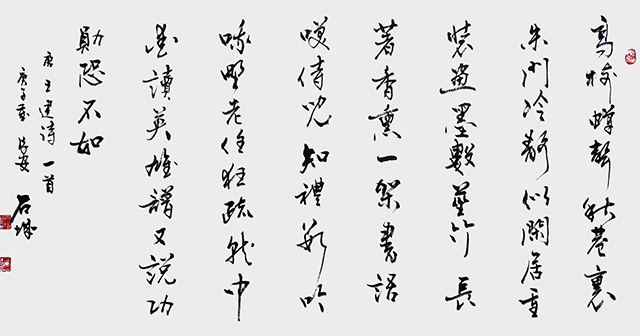 高樹蟬聲秋巷裏
朱門冷靜似閑居重
裝畫墨數莖竹長
著香熏一架書語
侍兒知禮數吟
哦野老任狂疏就中
愛讀英雄譜又說功
勛恐不如
唐王建詩一首
庚子
石